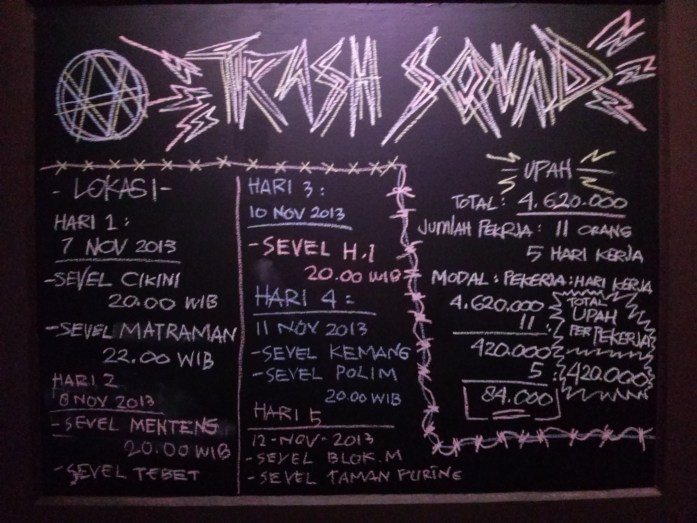 TRASH SQUAD
- LOKASI -
HARI 1 :
7 NOV 2013
- SEVEL CIKINI
20.00 WIB
- SEVEL MATRAMAN
22.00 WIB
HARI 2
8 NOV 2013
- SEVEL MENTENG
20.00 WIB
- SEVEL TEBET
HARI 3 :
10 NOV 2013
- SEVEL H.I
20.00 WIB
HARI 4 :
11 NOV 2013
- SEVEL KEMANG
- SEVEL POLIM
20.00 WIB
HARI 5
12-NOV-2013
- SEVEL BLOK.M
- SEVEL TAMAN PURING
UPAH
TOTAL: 4.620.000
JUMLAH PEKRJA : 11 ORANG
5 HARI KERJA
MODAL : PEKERJA : HARI KERJA
4.620.000
11 :
420.000
5 :
84.000
TOTAL
UPAH
PER PEKERJA
420.000